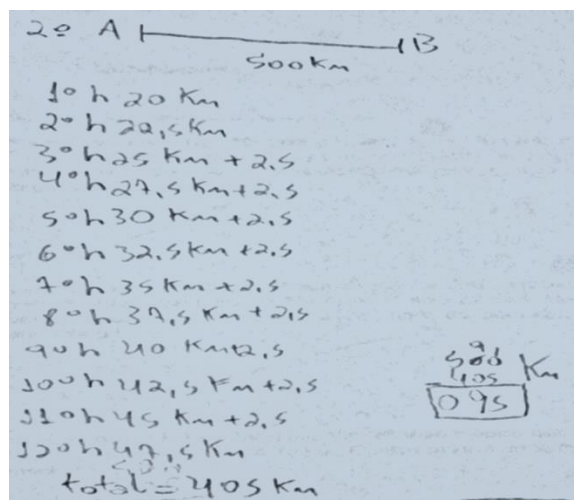 2º A B
500Km
1º h 20 Km
2º h 22,5Km
3º h 25 Km + 2,5
4º h 27,5 Km + 2,5
5º h 30 Km + 2,5
6º h 32,5 Km + 2,5
7º h 35 Km + 2,5
8º h 37,5 Km + 2,5
9º h 40 Km+2,5
10º h 42,5 Km + 2,5
11º h 45 Km + 2,5
12º h 47,5 Km
total = 405 Km
9
500 Km
405
095